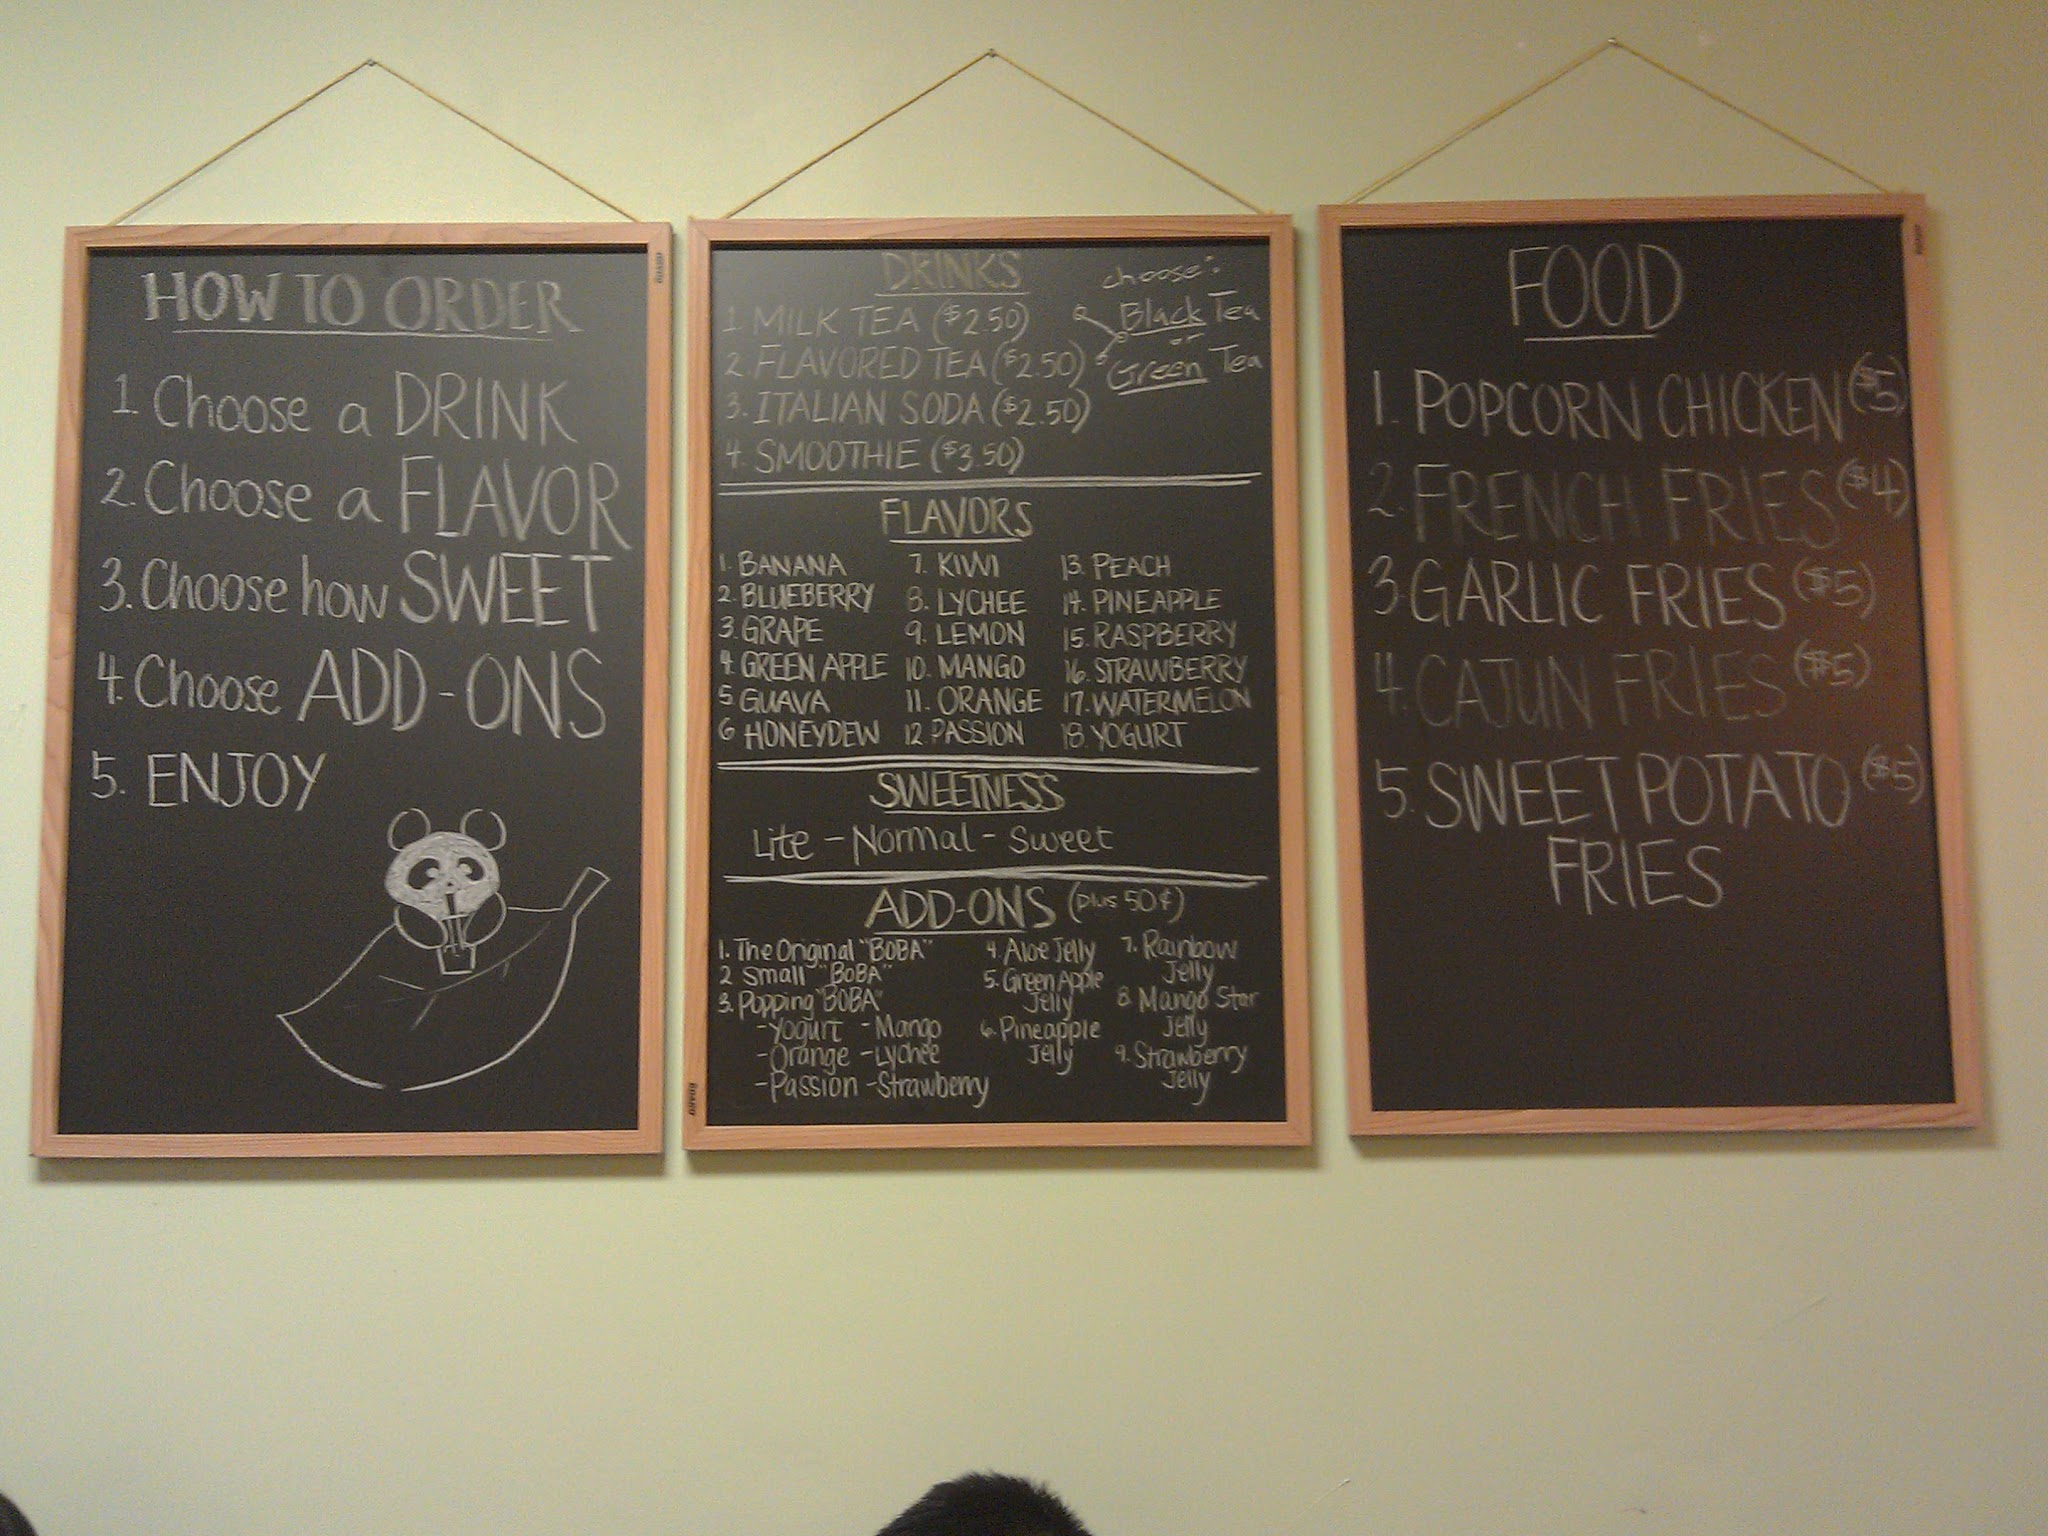 HOW TO ORDER
1. Choose a DRINK
2. Choose a FLAVOR
3. Choose how SWEET
4. Choose ADD-ONS
5. ENJOY
DRINKS
1. MILK TEA ($2.50)
2. FLAVORED TEA ($2.50)
3. ITALIAN SODA ($2.50)
4. SMOOTHIE ($3.50)
choose:
Black Tea
or
Green Tea
FLAVORS
1. BANANA
2. BLUEBERRY
3. GRAPE
4. GREEN APPLE
5 GUAVA
6 HONEYDEW
7. KIWI
8. LYCHEE
9. LEMON
10. MANGO
11. ORANGE
12. PASSION
13. PEACH
14. PINEAPPLE
15. RASPBERRY
16. STRAWBERRY
17. WATERMELON
18. YOGURT
SWEETNESS
Lite - Normal - Sweet
ADD-ONS (plus 50¢)
1. The Original "BOBA"
2 Small "BOBA"
3. Popping "BOBA"
-Yogurt -Mango
-Orange -Lychee
-Passion -Strawberry
4. Aloe Jelly
5. Green Apple
Jelly
6. Pineapple
Jelly
7. Rainbow
Jelly
8. Mango Star
Jelly
9. Strawberry
Jelly
FOOD
1. POPCORN CHICKEN ($5)
2. FRENCH FRIES ($4)
3. GARLIC FRIES ($5)
4. CAJUN FRIES ($5)
5. SWEET POTATO ($5)
FRIES